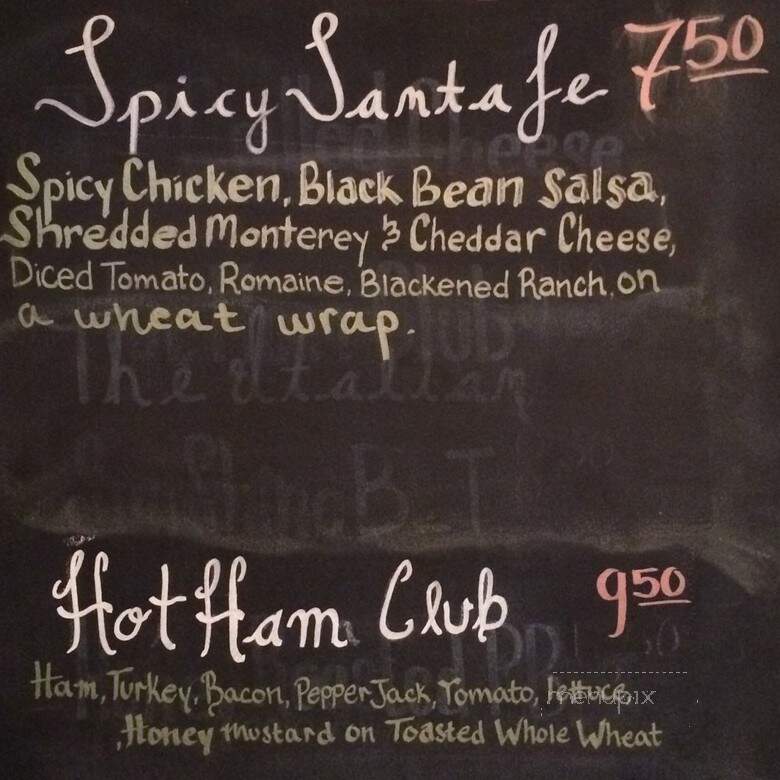 Spicy Santa fe 7 50
Spicy Chicken, Black Bean Salsa,
Shredded Monterey & Cheddar Cheese,
Diced Tomato, Romaine, Blackened Ranch, on
a wheat wrap.
The Italian
Hot Ham Club 9 50
Ham, Turkey, Bacon, Pepper Jack, Tomato, Lettuce,
menupix
,Honey mustard on Toasted Whole Wheat